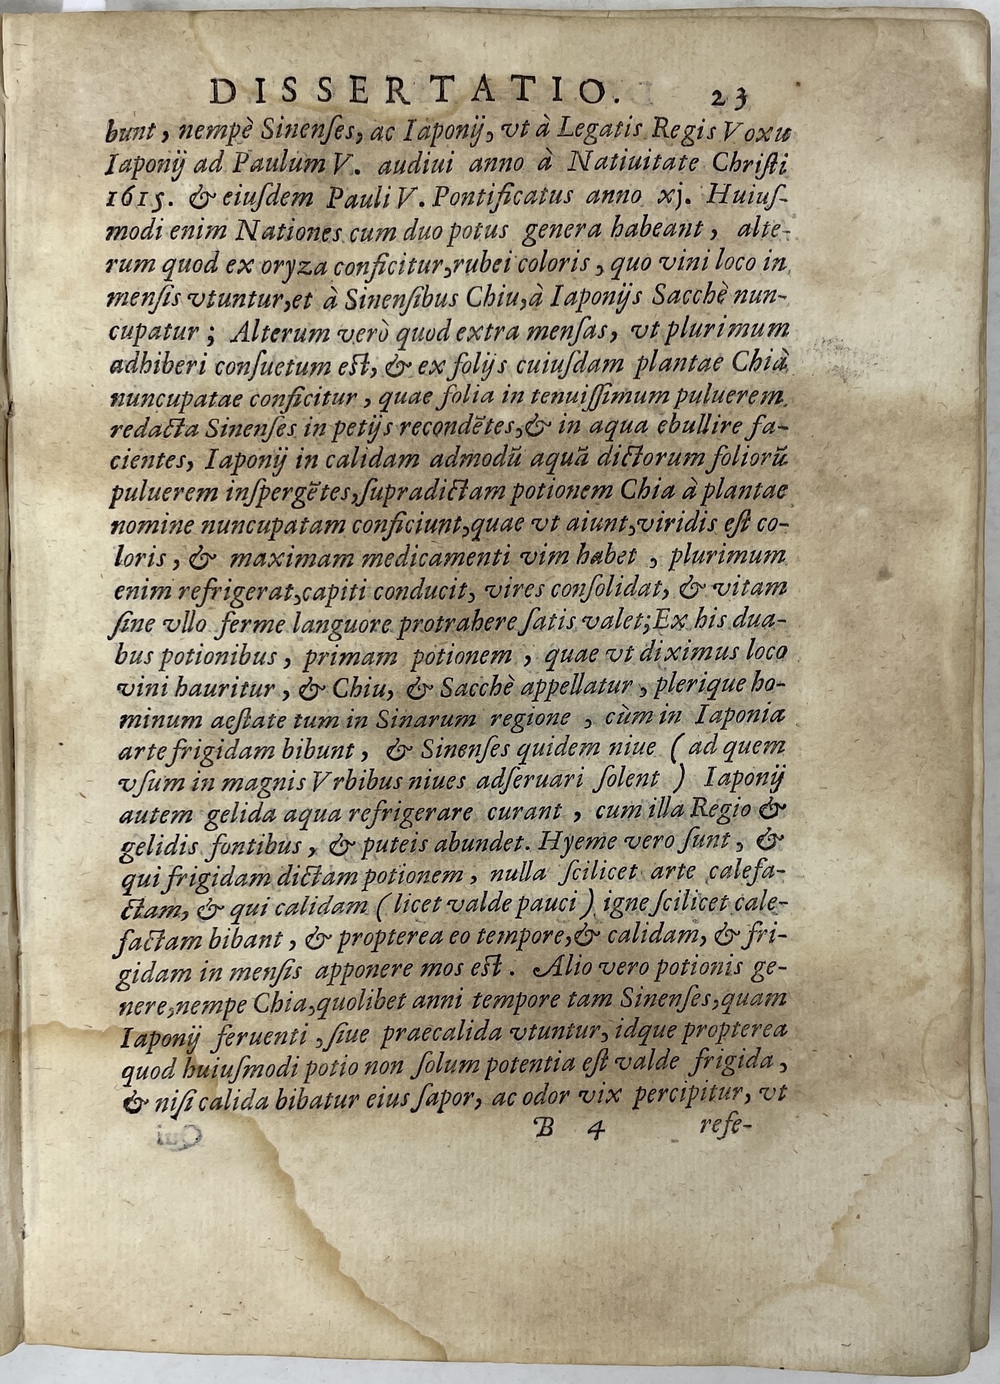 DISSERTATIO. 23
bunt, nempè Sinenſes, ac Iaponij, vt à Legatis Regis Voxu
Iaponij ad Paulum V. audiui anno à Natiuitate Chriſti
1615. & eiuſdem Pauli V. Pontificatus anno xj. Huiuſ-
modi enim Nationes cum duo potus genera habeant, alte-
rum quod ex oryza conficitur, rubei coloris, quo vini loco in
menſis vtuntur, et à Sinenſibus Chiu, à Iaponijs Sacchè nun-
cupatur; Alterum verò quod extra menſas, vt plurimum
adhiberi conſuetum eſt, & ex folijs cuiuſdam plantae Chià
nuncupatae conficitur, quae folia in tenuiſſimum puluerem
redacta Sinenſes in petijs recondẽtes, & in aqua ebullire fa-
cientes, Iaponij in calidam admodũ aquã dictorum foliorũ
puluerem inſpergẽtes, ſupradictam potionem Chia à plantae
nomine nuncupatam conficiunt, quae vt aiunt, viridis eſt co-
loris, & maximam medicamenti vim habet, plurimum
enim refrigerat, capiti conducit, vires conſolidat, & vitam
ſine vllo ferme languore protrahere ſatis valet; Ex his dua-
bus potionibus, primam potionem, quae vt diximus loco
vini hauritur, & Chiu, & Sacchè appellatur, plerique ho-
minum aeſtate tum in Sinarum regione, cùm in Iaponia
arte frigidam bibunt, & Sinenſes quidem niue (ad quem
vſum in magnis Vrbibus niues adſeruari ſolent) Iaponij
autem gelida aqua refrigerare curant, cum illa Regio &
gelidis fontibus, & puteis abundet. Hyeme vero ſunt, &
qui frigidam dictam potionem, nulla ſcilicet arte calefa-
ctam, & qui calidam (licet valde pauci) igne ſcilicet cale-
factam bibant, & propterea eo tempore, & calidam, & fri-
gidam in menſis apponere mos eſt. Alio vero potionis ge-
nere, nempe Chia, quolibet anni tempore tam Sinenſes, quam
Iaponij feruenti, ſiue praecalida vtuntur, idque propterea
quod huiuſmodi potio non ſolum potentia eſt valde frigida,
& niſi calida bibatur eius ſapor, ac odor vix percipitur, vt
B 4 refe-